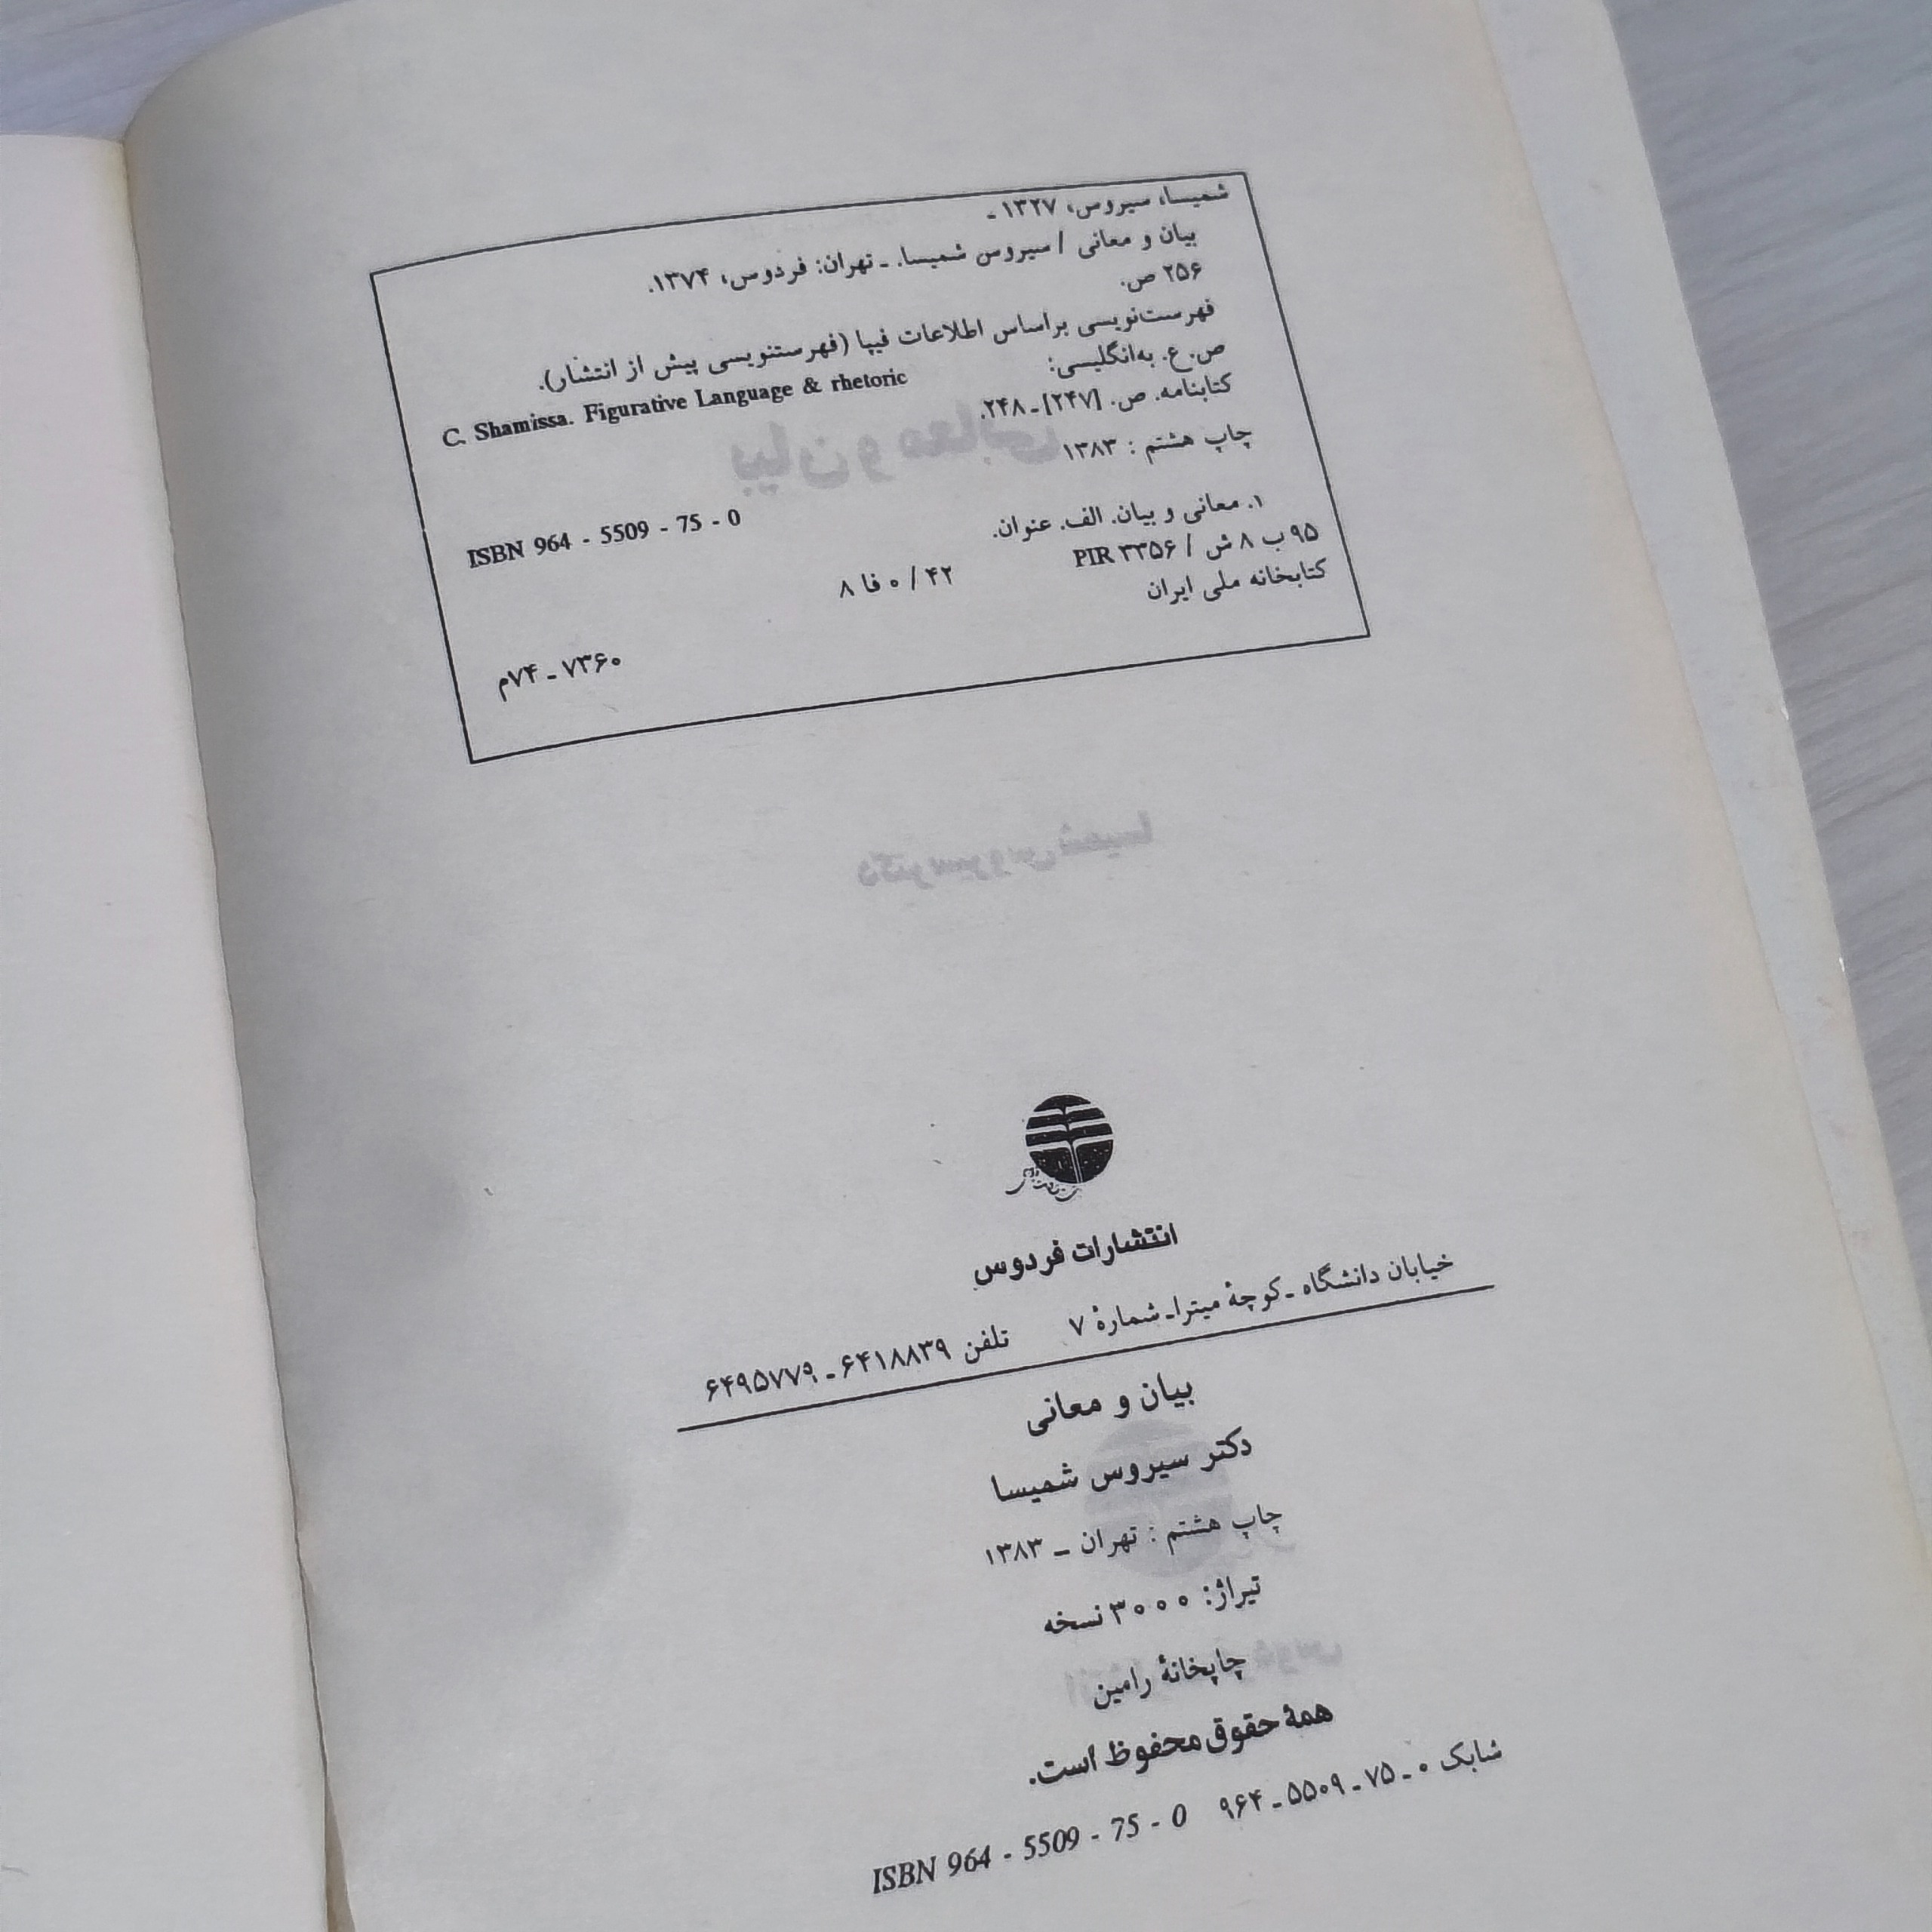 شمیسا، سیروس، ۱۳۲۷ -
بیان و معانی / سیروس شمیسا. - تهران: فردوس، ۱۳۷۴.
۲۵۶ ص.
فهرست‌نویسی براساس اطلاعات فیپا (فهرستنویسی پیش از انتشار).
ص. ع. به‌انگلیسی: C. Shamissa. Figurative Language & rhetoric
کتابنامه. ص. [۲۴۷] - ۲۴۸.
چاپ هشتم : ۱۳۸۳
ISBN 964 - 5509 - 75 - 0
۱. معانی و بیان. الف. عنوان.
۹۵ ب ۸ ش / PIR ۳۳۵۶
۴۲ / ۰ فا ۸
کتابخانه ملی ایران
۷۳۶۰ - ۷۴م
انتشارات فردوس
خیابان دانشگاه - کوچهٔ میترا - شمارهٔ ۷ تلفن ۶۴۱۸۸۳۹ - ۶۴۹۵۷۷۹
بیان و معانی
دکتر سیروس شمیسا
چاپ هشتم : تهران - ۱۳۸۳
تیراژ: ۳۰۰۰ نسخه
چاپخانهٔ رامین
همهٔ حقوق محفوظ است.
شابک ۰ - ۷۵ - ۵۵۰۹ - ۹۶۴ ISBN 964 - 5509 - 75 - 0